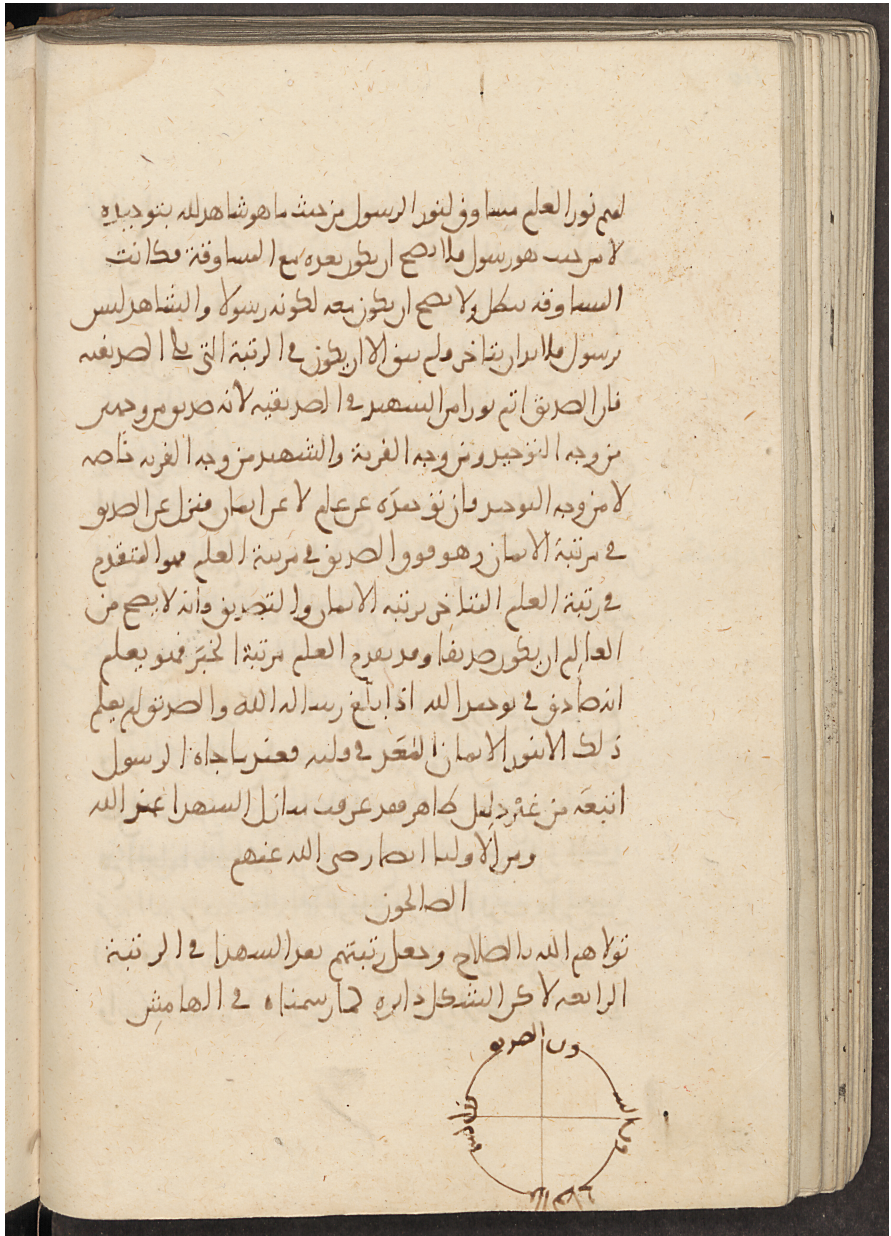 لهم نور العلم مساوق لنور الرسول من حيث ما هو شاهد لله بتوحيده
لا من حيث هو رسول فلا يصح ان يكون بعده مع المساوقة فكانت
المساوقة تبطل ولا يصح ان يكون معه لكونه رسولا والشاهد ليس
برسول فلا بد ان يتاخر فلم يبق الا ان يكون في الرتبة التي تلي الصديقية
فان الصديق اتم نورا من الشهيد في الصديقية لانه صديق من وجهين
من وجه التوحيد ومن وجه القربة والشهيد من وجه القربة خاصة
لا من وجه التوحيد فان توحيده عن علم لا عن ايمان فنزل عن الصديق
في مرتبة الايمان وهو فوق الصديق في مرتبة العلم فهو المتقدم
في رتبة العلم المتاخر برتبة الايمان والتصديق فانه لا يصح من
العالم ان يكون صديقا وقد تقدم العلم مرتبة الخبر فهو يعلم
انه صادق في توحيد الله اذا بلغ رسالة الله والصديق لم يعلم
ذلك الا بنور الايمان المعد في قلبه فعندما جاه الرسول
اتبعه من غير دليل ظاهر فقد عرفت منازل الشهدا عند الله
ومن الاوليا ايضا رضى الله عنهم
الصالحون
تولاهم الله بالصلاح وجعل رتبتهم بعد الشهدا في الرتبة
الرابعة لاكن الشكل دايره كما رسمناه في الهامش
الصديق